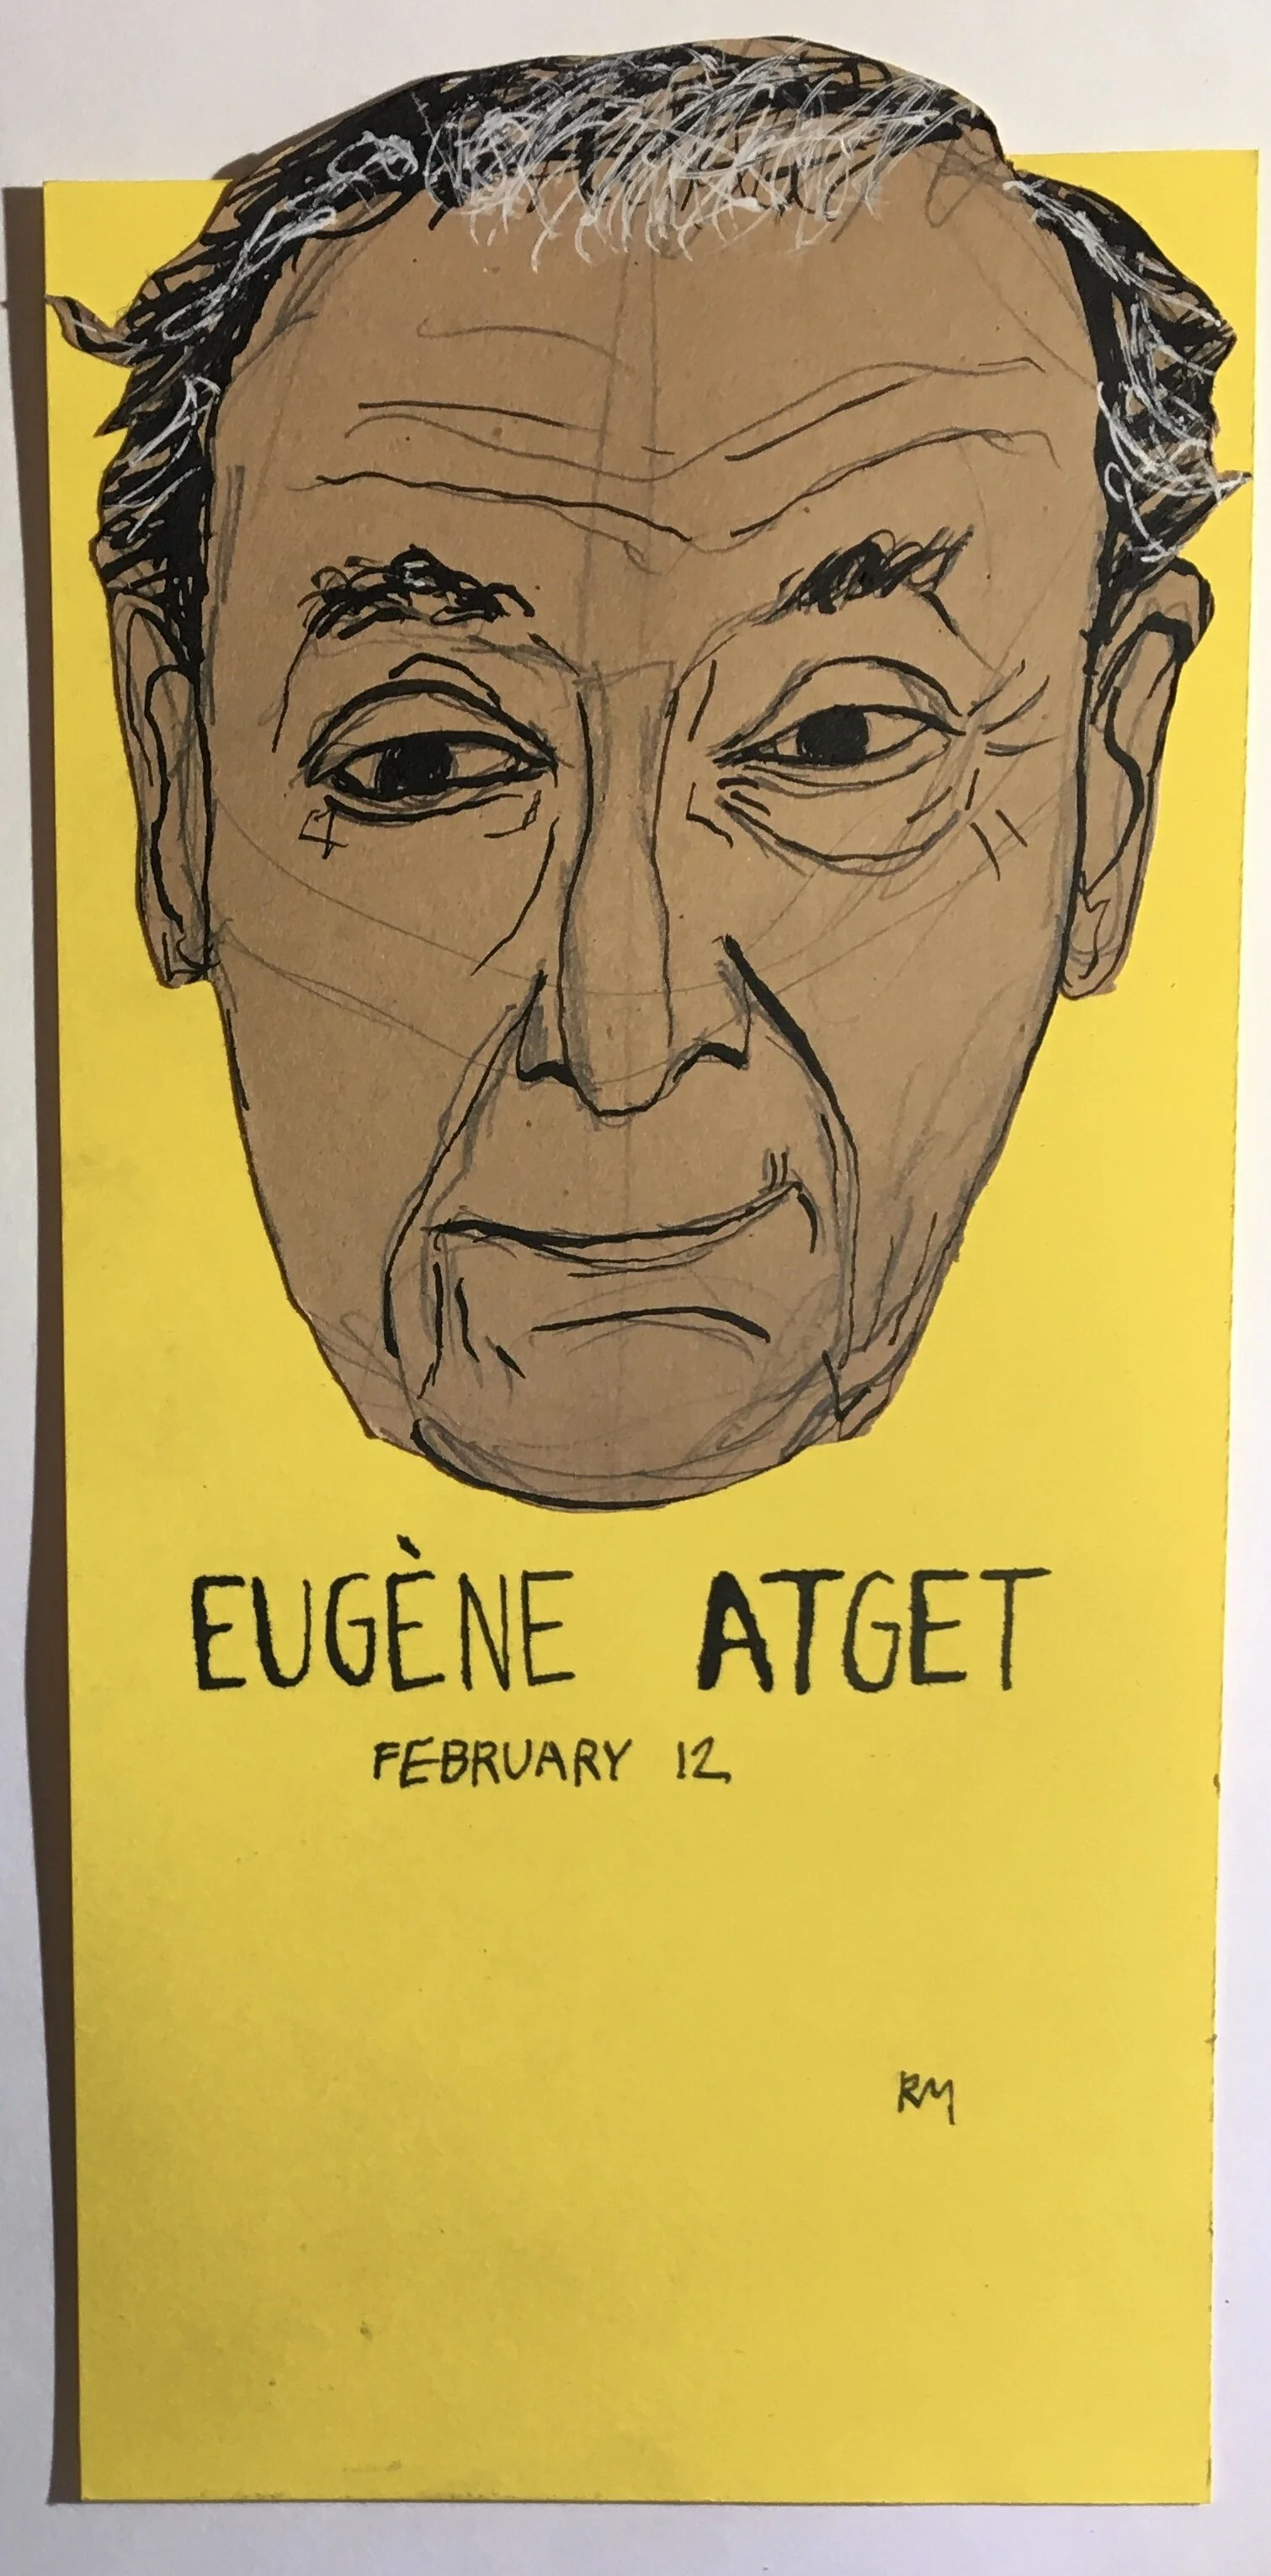 EUGÈNE ATGET
FEBRUARY 12
RM